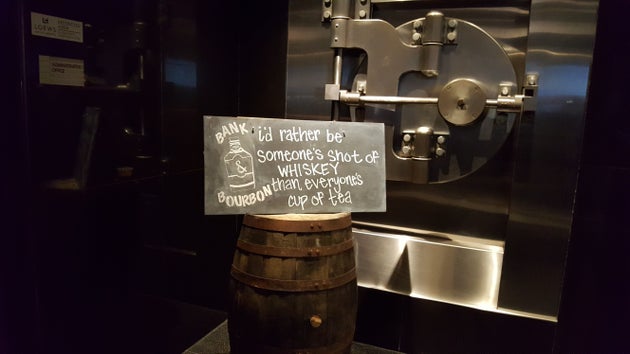 LOEWS
ADMINISTRATION
OFFICE
BANK
&
BOURBON
i'd rather be
someone's shot of
WHISKEY
than, everyone's
cup of tea